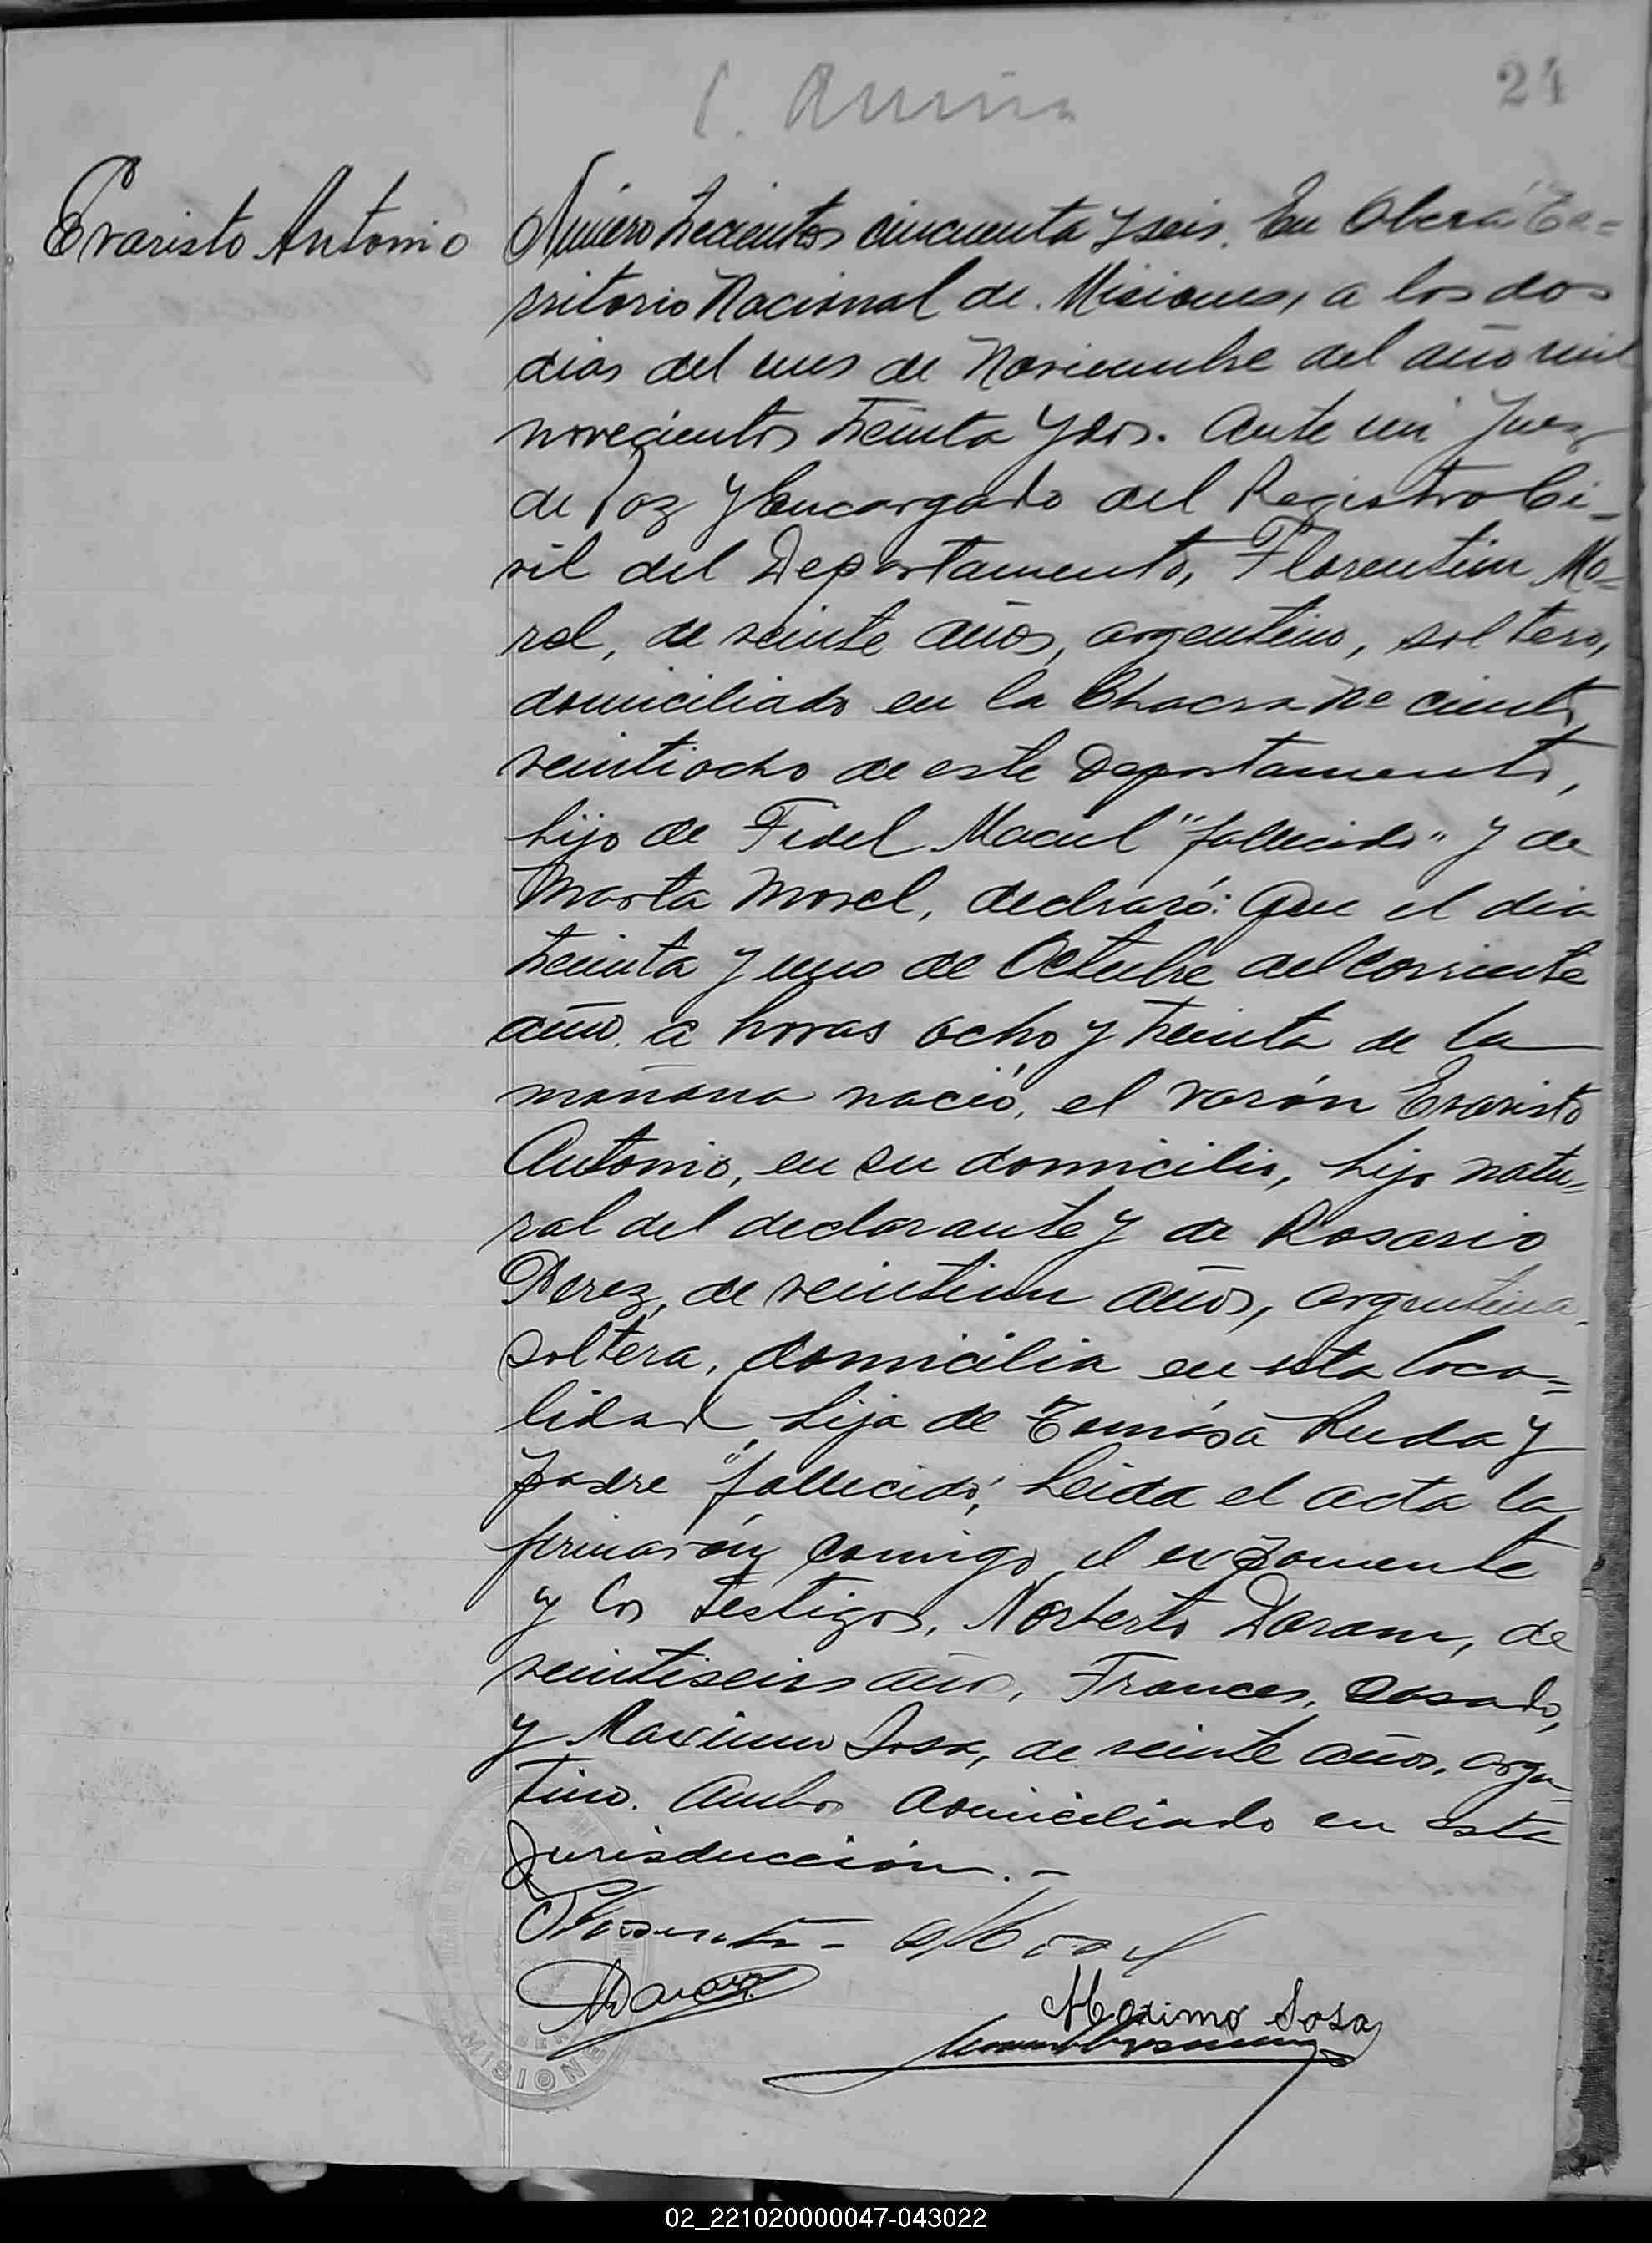 24
Evaristo Antonio
Número trecientos cincuenta y seis. En Oberá Te=
rritorio Nacional de Misiones, a los dos
dias del mes de Noviembre del año mil
novecientos treinta y dos. Ante mi Juez
de Paz y Encargado del Registro Ci-
vil del Departamento, Florentin Mo-
rel, de veinte años, argentino, soltero,
domiciliado en la Chacra No ciento
veintiocho de este Departamento,
hijo de Fidel Maciel "fallecido" y de
Marta Morel, declraró: Que el dia
treinta y uno de Octubre del corriente
año. a horas ocho y treinta de la
mañana nació, el varón Evaristo
Antonio, en su domicilio, hijo natu-
ral del declarante y de Rosario
Perez, de veintiun años, argentina.
soltera, domicilia en esta loca=
lidad, hija de Tomása Ruda y
padre "fallecido", Leida el acta la
firmarón comigo el exponente
y los testigos, Norberto Daram, de
veintiseis años, Frances, casado,
y Maximo Sosa, de veinte años, argen-
tino. Ambos domiciliado en esta
Jurisducción.-
Morel
Maximo Sosa
MISIONE
02_221020000047-043022